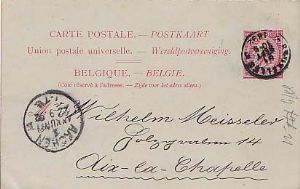 CARTE POSTALE. — POSTKAART
Union postale universelle. — Wereldpostvereeniging.
BELGIQUE. — BELGIE.
(Côté réservé à l'adresse. — Zijde voor het adres alleen.)
Wilhelm Meisseler
14
Aix-la-Chapelle
AACHEN